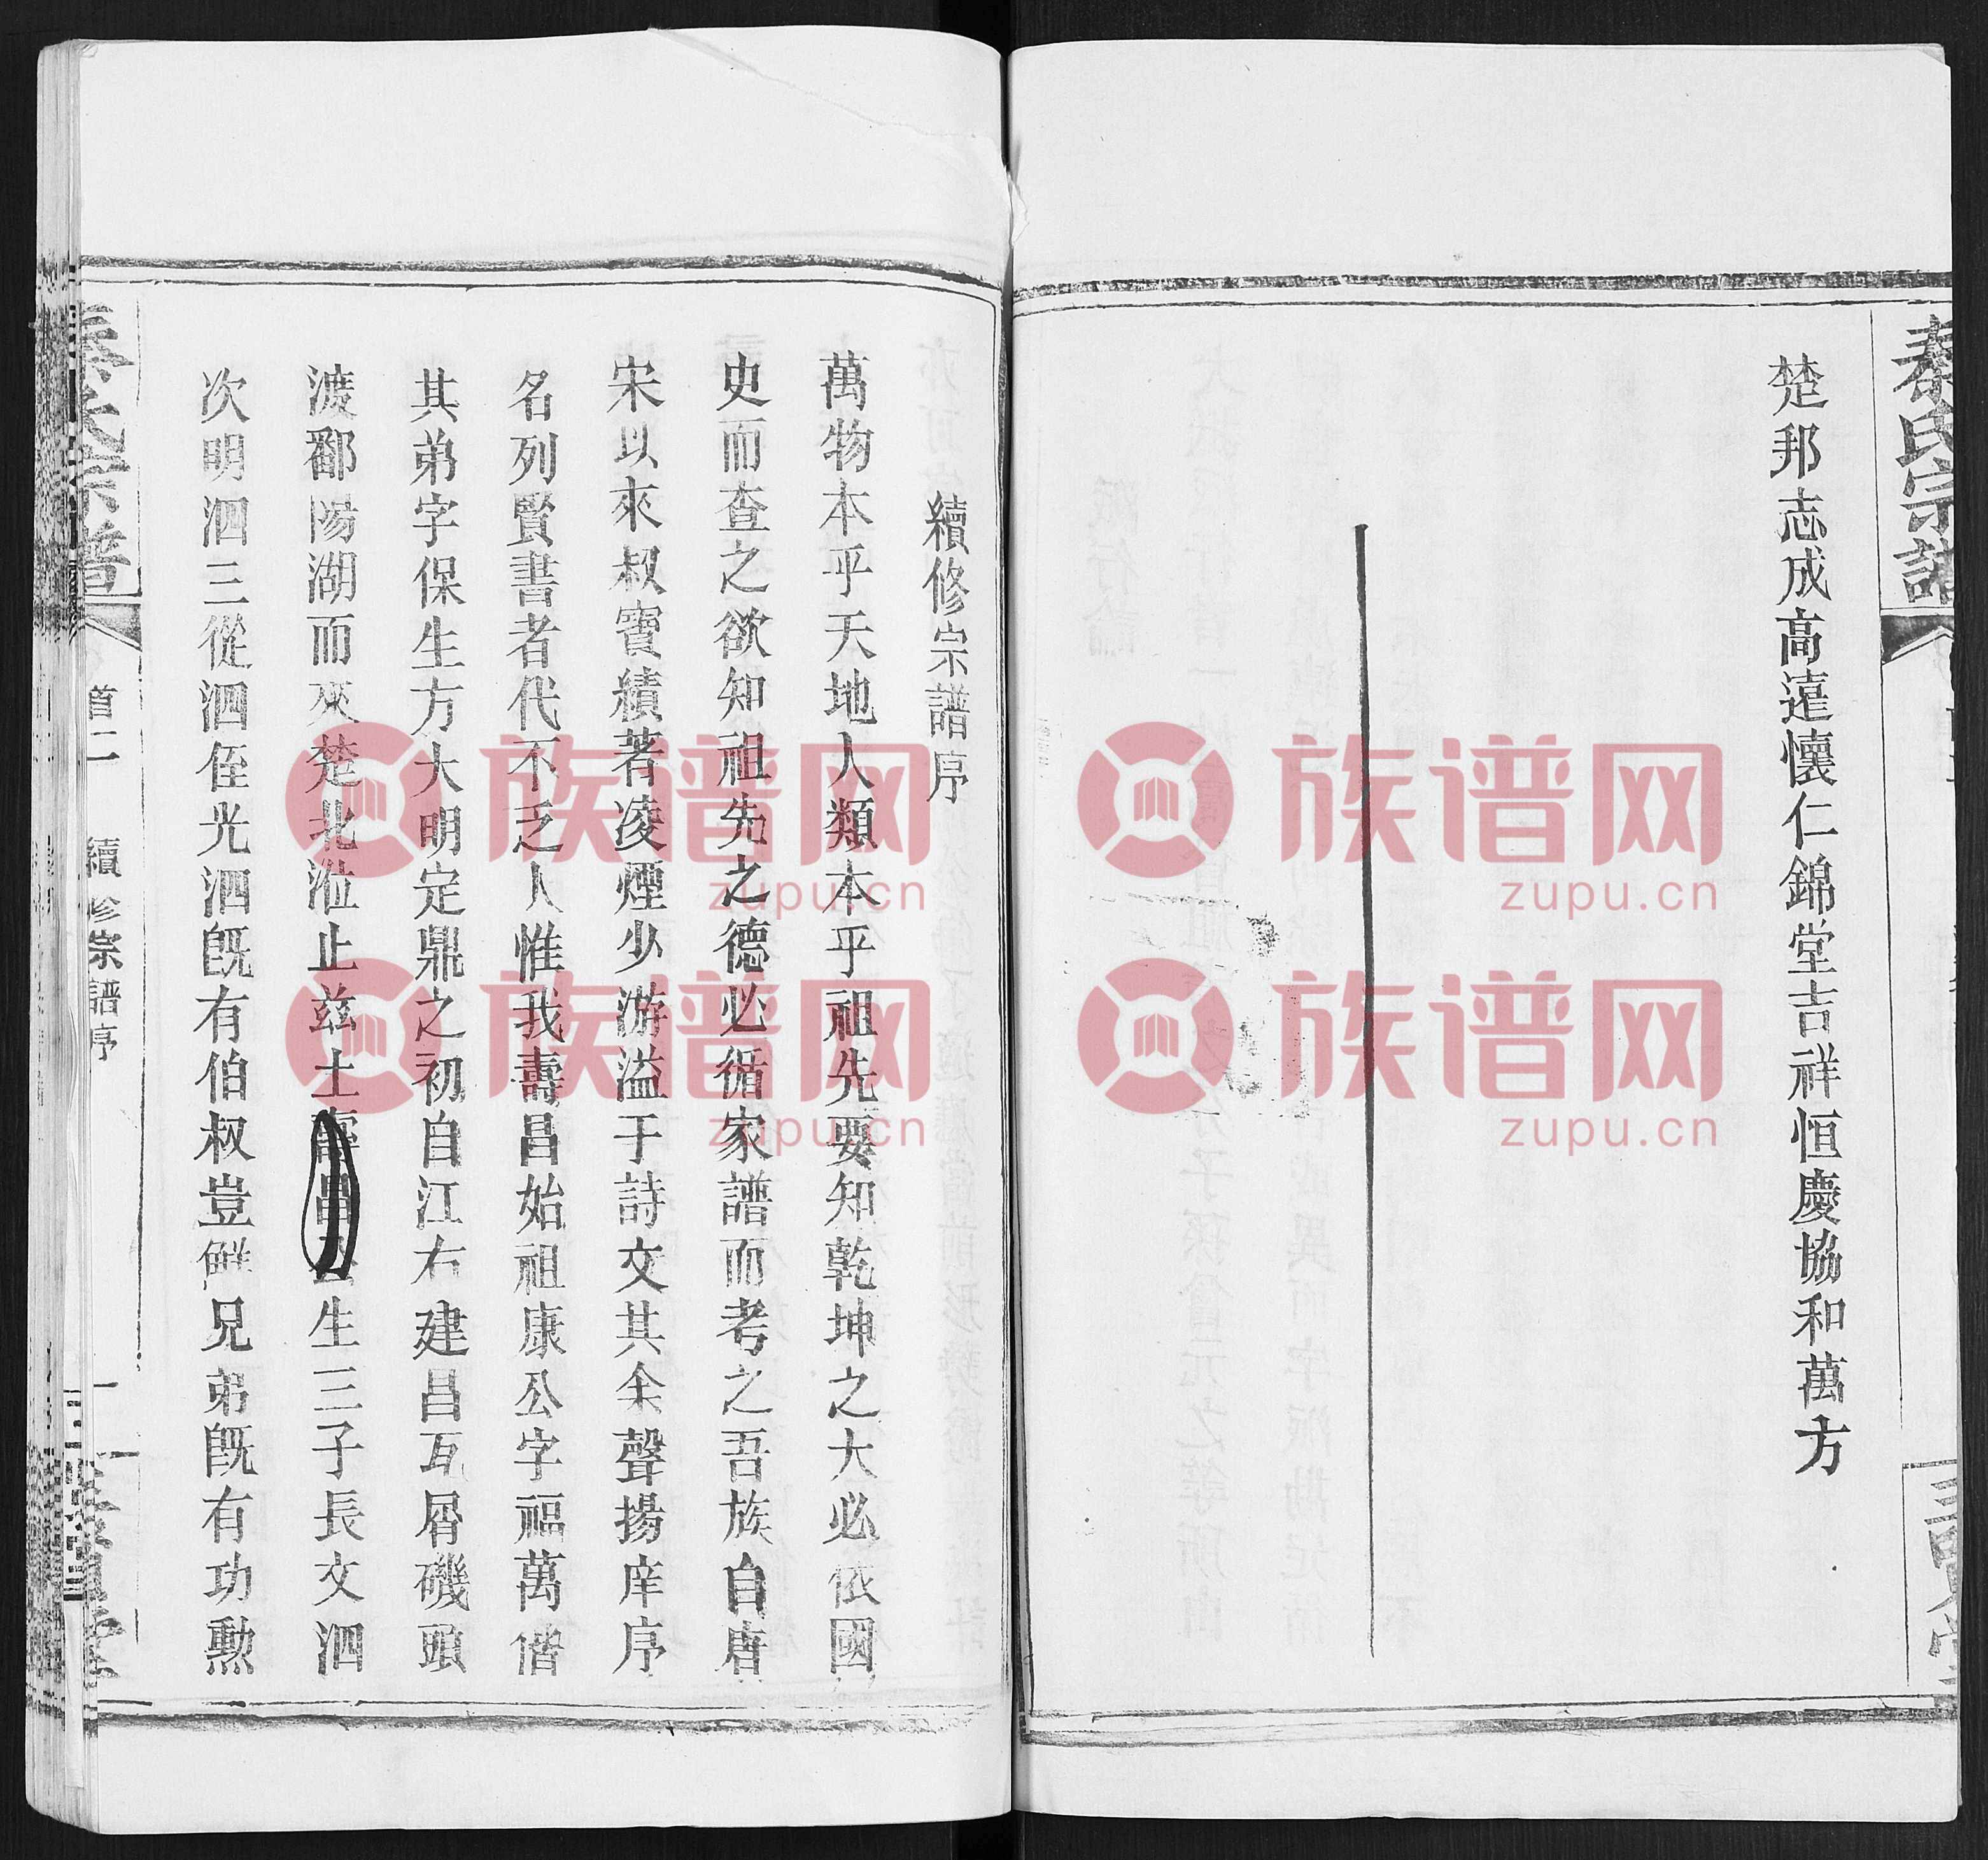 秦氏宗譜
三賢堂
楚邦志成高遠懷仁錦堂吉祥恒慶協和萬方
續修宗譜序
萬物本乎天地人類本乎祖先要知乾坤之大必依國
史而查之欲知祖先之德必循家譜而考之吾族自唐
宋以來叔寶績著凌煙少游溢于詩文其余聲揚庠序
名列賢書者代不乏人惟我壽昌始祖康公字福萬偕
其弟字保生方大明定鼎之初自江右建昌瓦屑磯頭
渡鄱陽湖而來楚北止茲土壽昌公生三子長文泗
次明泗三從泗侄光泗既有伯叔豈鮮兄弟既有功勲
秦氏宗譜
首二
續修宗譜序
三賢堂
族谱网
zupu.cn
族谱网
zupu.cn
族谱网
zupu.cn
族谱网
zupu.cn